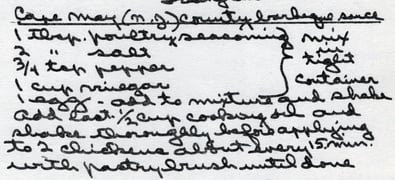 Cape May (N.J.) County barbeque sauce
1 tbsp. poultry seasoning
2 " salt
3/4 tsp pepper
1 cup vinegar
mix
in
tight
container
1 egg - add to mixture and shake
add last 1/2 cup cooking oil and
shake thoroughly before applying
to 2 chickens about every 15 min.
with pastry brush until done